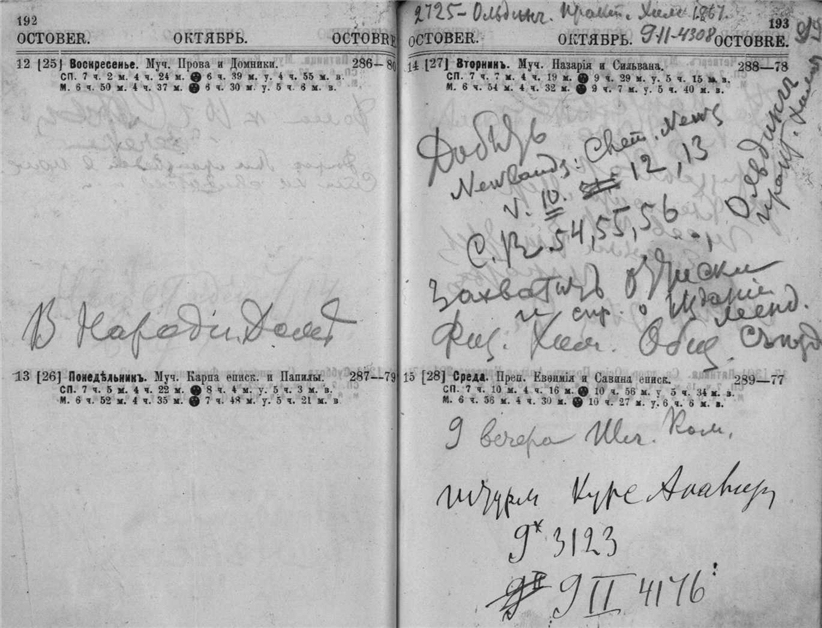 192
OCTOBER. ОКТЯБРЬ. OCTOBRE
12 [25] Воскресенье. Муч. Прова и Домники. 286—80
СП. 7 ч. 2 м. 4 ч. 24 м. 6 ч. 39 м. у. 4 ч. 55 м. в.
М. 6 ч. 50 м. 4 ч. 37 м. 6 ч. 30 м. у. 5 ч. 6 м. в.
В Народн. Доме
13 [26] Понедѣльникъ. Муч. Карпа еписк. и Папилы. 287—79
СП. 7 ч. 5 м. 4 ч. 22 м. 8 ч. 4 м. у. 5 ч. 3 м. в.
М. 6 ч. 52 м. 4 ч. 35 м. 7 ч. 48 м. у. 5 ч. 21 м. в.
2725 – Ольдинг. Практ. Хим. 1867.
193
9-II-4308
OCTOBER. ОКТЯБРЬ. OCTOBRE.
14 [27] Вторникъ. Муч. Назарія и Сильвана. 288—78
СП. 7 ч. 7 м. 4 ч. 19 м. 9 ч. 29 м. у. 5 ч. 15 м. в.
М. 6 ч. 54 м. 4 ч. 32 м. 9 ч. 7 м. у. 5 ч. 40 м. в.
Newlands: Chem. News
v. 10. 12, 13
C. R. 54, 55, 56
Ольдингъ
практ. Химія
Захватить
и спр. о Изданіи
Физ. Хим. Общ. Съѣзд
15 [28] Среда. Преп. Евѳимія и Савина еписк. 289—77
СП. 7 ч. 10 м. 4 ч. 16 м. 10 ч. 56 м. у. 5 ч. 34 м. в.
М. 6 ч. 56 м. 4 ч. 30 м. 10 ч. 27 м. у. 6 ч. 6 м. в.
9 вечера Ком.
9x 3123
9 II 4176